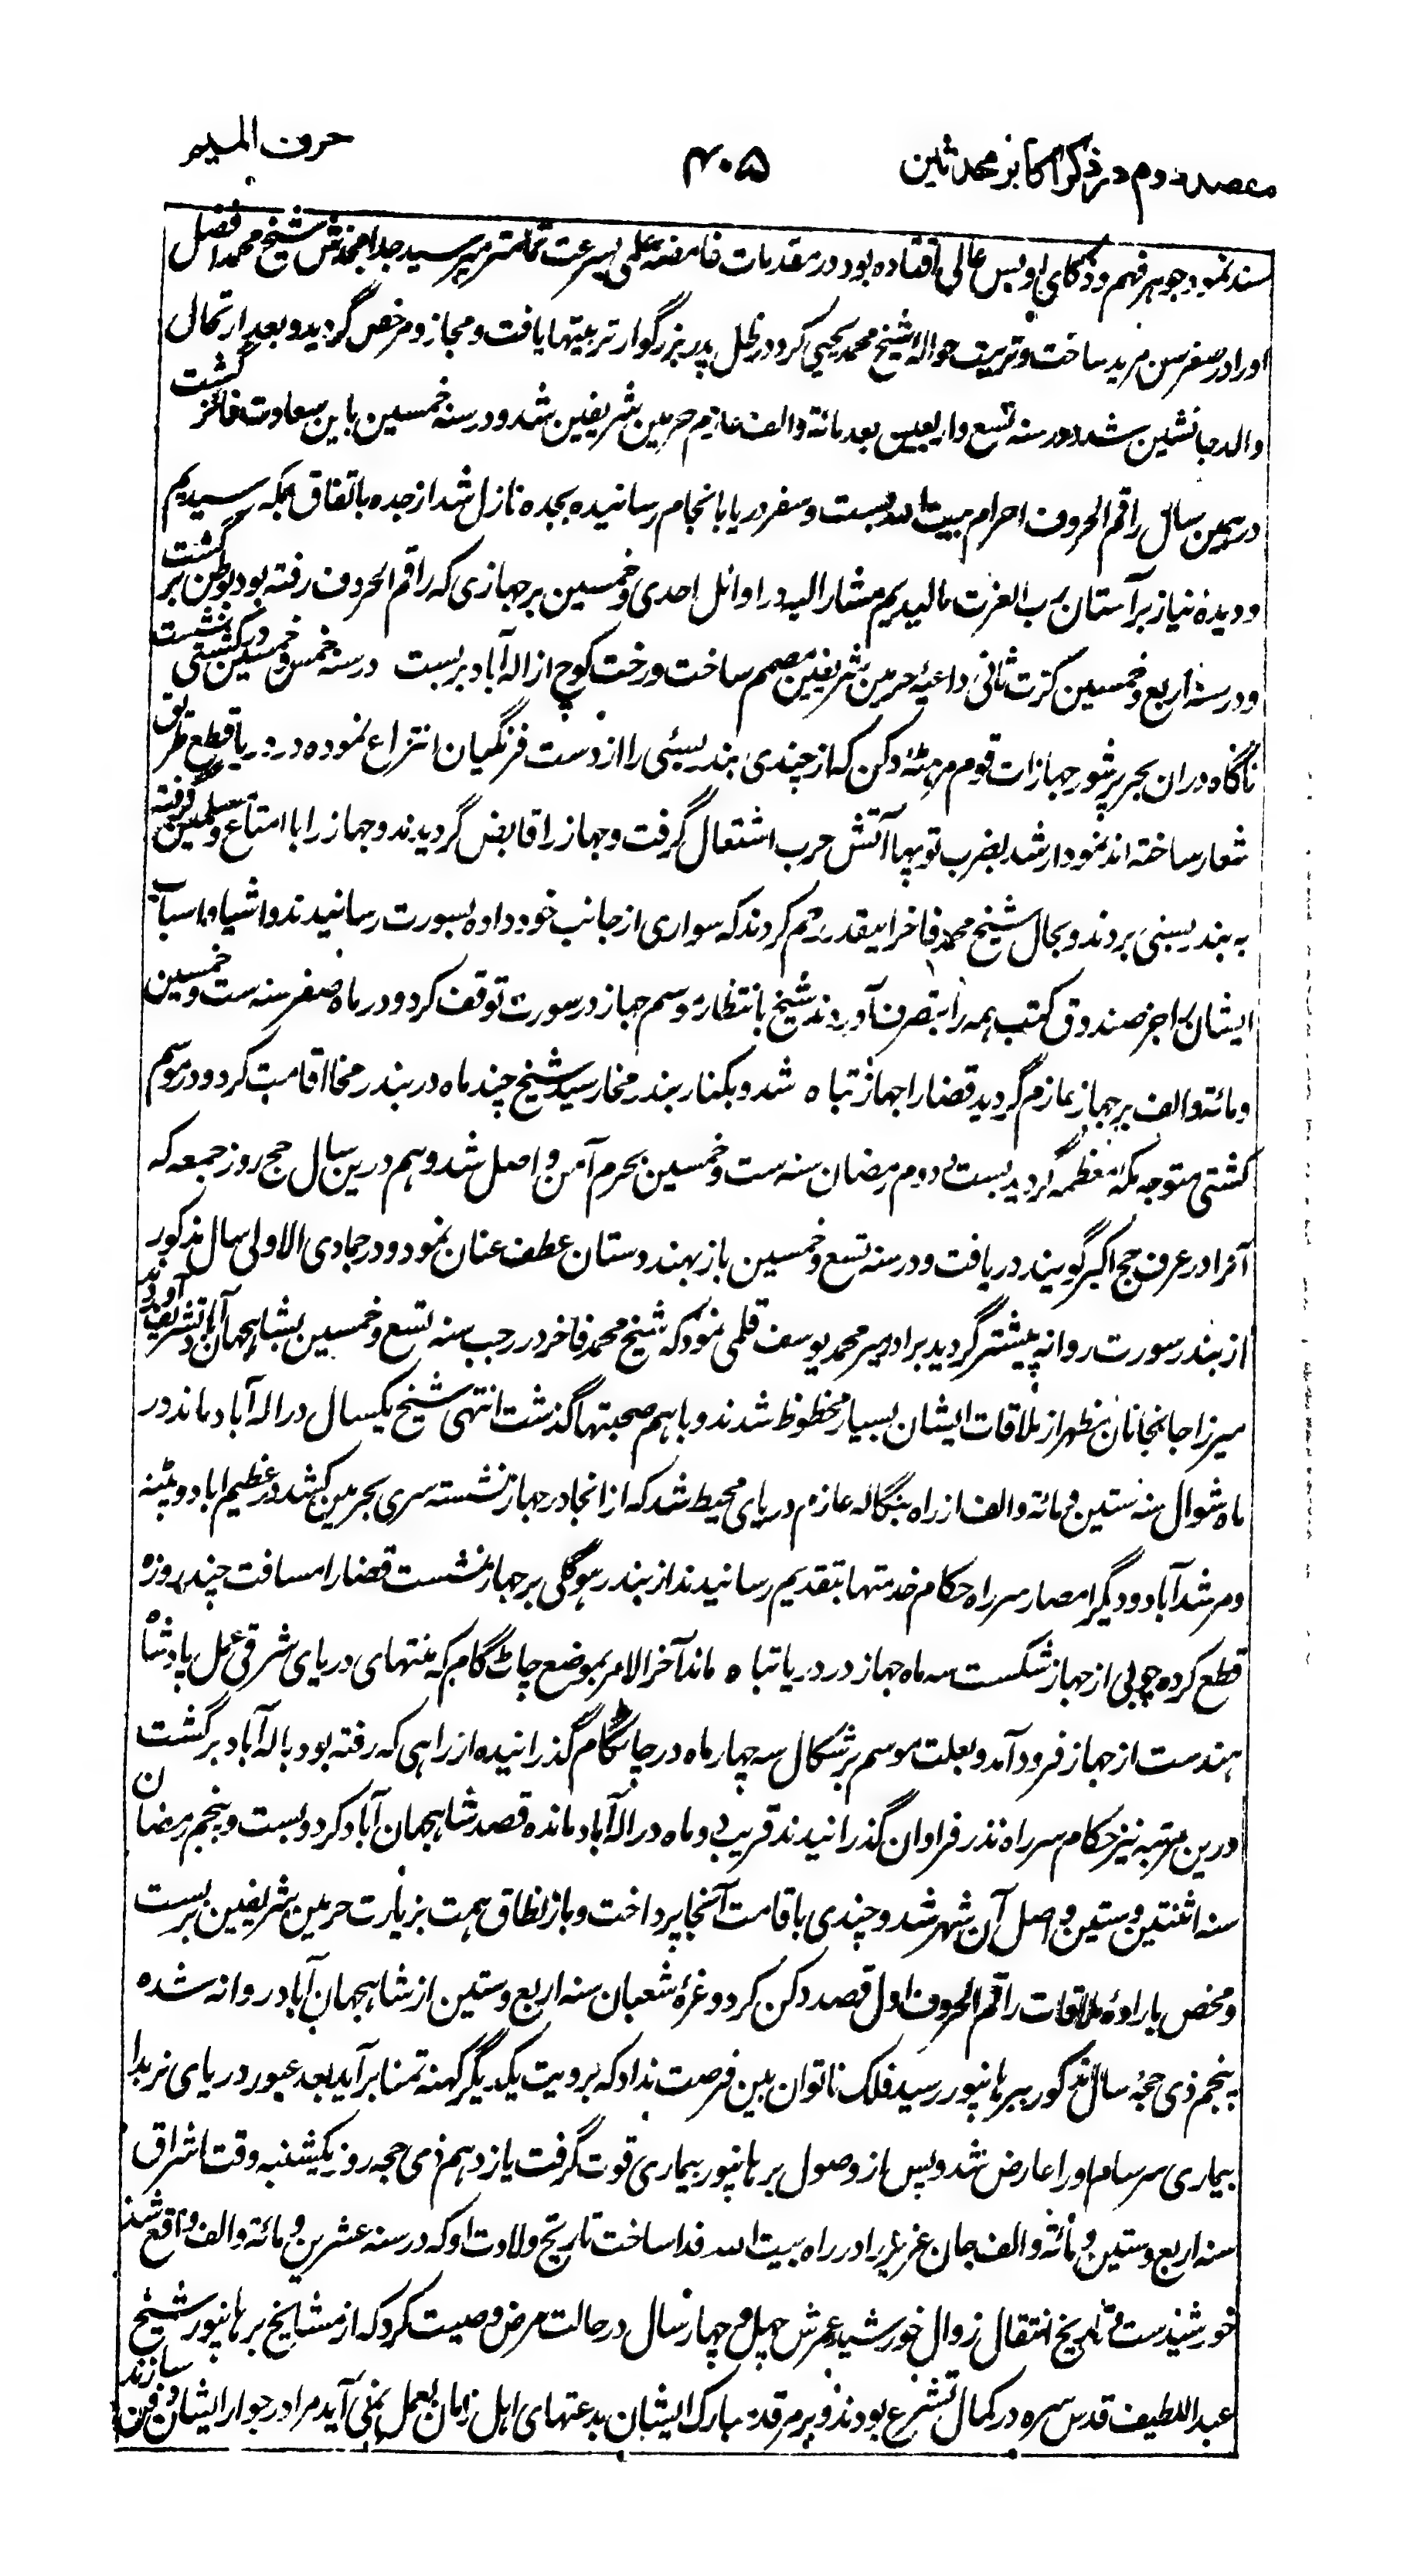 مقصد دوم در ذکر اکابر محدثین ۴۰۵ حرف المیم
سند نمود جوهر فهم و ذکای او بس عالی افتاده بود در مقدمات غامضهٔ علمی بسرعت تمامتر میرسید جد امجدش شیخ محمد افضل
او را در صغر سن مرید ساخت و تربیت حواله شیخ محمد یحیی کرد در ظل پدر بزرگوار تربیتها یافت و مجاز و مرخص گردید و بعد ارتحال
والد جانشین شد در سنه تسع و اربعین بعد مائة والف عازم حرمین شریفین شد و در سنه خمسین باین سعادت فائز گشت
در همین سال راقم الحروف احرام بیت الله بست و سفر دریا بانجام رسانیده بجده نازل شد از جده باتفاق بمکه رسیدیم
و دیدهٔ نیاز بر آستان رب العزت مالیدیم مشار الیه در اوائل احدی و خمسین بر جهازی که راقم الحروف رفته بود بوطن برگشت
و در سنه اربع و خمسین کرت ثانی داعیهٔ حرمین شریفین مصمم ساخت و رخت کوچ از اله آباد بربست در سنه خمس و خمسین در کشتی نشست
ناگاه دران بحر پر شور جهازات قوم مرهٹه دکن که از چندی بندر بسئی را از دست فرنگیان انتزاع نموده در دریا قطع طریق
شعار ساخته اند نمودار شد بضرب توپها آتش حرب اشتعال گرفت و جهاز را قابض گردیدند و جهاز را با امتاع و مسلمین گرفته
به بندر بسئی بردند و بحال شیخ محمد فاخر اینقدر رحم کردند که سواری از جانب خود داده بسورت رسانیدند و اشیا و اسباب
ایشان را جز صندوق کتب همه را بتصرف آوردند شیخ بانتظار موسم جهاز در سورت توقف کرد و در ماه صفر سنه ست و خمسین
و مائة والف بر جهاز عازم گردید قضا را جهاز تباه شد و بکنار بندر مخا رسید شیخ چند ماه در بندر مخا اقامت کرد و در موسم
کشتی متوجه مکهٔ معظمه گردید بست و دوم رمضان سنه ست و خمسین بحرم آمن و اصل شد و هم درین سال حج روز جمعه که
آنرا در عرف حج اکبر گویند دریافت و در سنه تسع و خمسین باز بهندوستان عطف عنان نمود و در جمادی الاولی سال مذکور
از بندر سورت روانه پیشتر گردید برادرم میر محمد یوسف قلمی نمود که شیخ محمد فاخر در رجب سنه تسع و خمسین بشاهجهان آباد تشریف آوردند
میرزا جانجانان مظهر از ملاقات ایشان بسیار محظوظ شدند و باهم صحبتها گذشت انتهی شیخ یکسال در اله آباد ماند و در
ماه شوال سنه ستین و مائة والف از راه بنگاله عازم دریای محیط شد که از انجا در جهاز نشسته سری بحرمین کشد در عظیم اباد و پٹنه
و مرشد آباد و دیگر امصار سر راه حکام خدمتها بتقدیم رسانیدند از بندر هوگلی بر جهاز نشست قضا را مسافت چند روزه
قطع کرده چوبی از جهاز شکست سه ماه جهاز در دریا تباه ماند آخر الامر بموضع چاٹ گام که منتهای دریای شرقی عمل پادشاه
هندست از جهاز فرود آمد و بعلت موسم برشکال سه چهار ماه در چاٹگام گذرانیده از راهی که رفته بود باله آباد برگشت
درین مرتبه نیز حکام سر راه نذر فراوان گذرانیدند قریب دو ماه در اله آباد مانده قصد شاهجهان آباد کرد و بست و پنجم رمضان
سنه اثنتین و ستین و اصل آن شهر شد و چندی باقامت آنجا پرداخت و باز نطاق همت بزیارت حرمین شریفین بربست
و محض بارادهٔ ملاقات راقم الحروف اول قصد دکن کرد و غرهٔ شعبان سنه اربع و ستین از شاهجهان آباد روانه شده
پنجم ذی حجهٔ سال مذکور ببرهانپور رسید فلک ناتوان بین فرصت نداد که برویت یکدیگر کهنه تمنا برآید بعد عبور دریای نربدا
بیماری سرسام او را عارض شد و پس از وصول برهانپور بیماری قوت گرفت یازدهم ذی حجه روز یکشنبه وقت اشراق
سنه اربع و ستین و مائة والف جان عزیز را در راه بیت الله فدا ساخت تاریخ ولادت او که در سنه عشرین و مائة والف واقع شد
خورشیدست و تاریخ انتقال زوال خورشید عمرش چهل و چهار سال در حالت مرض وصیت کرد که از مشایخ برهانپور شیخ
عبد اللطیف قدس سره در کمال تشرع بودند و بر مرقد مبارک ایشان بدعتهای اهل زمان بعمل نمی آید مرا در جوار ایشان دفن سازند